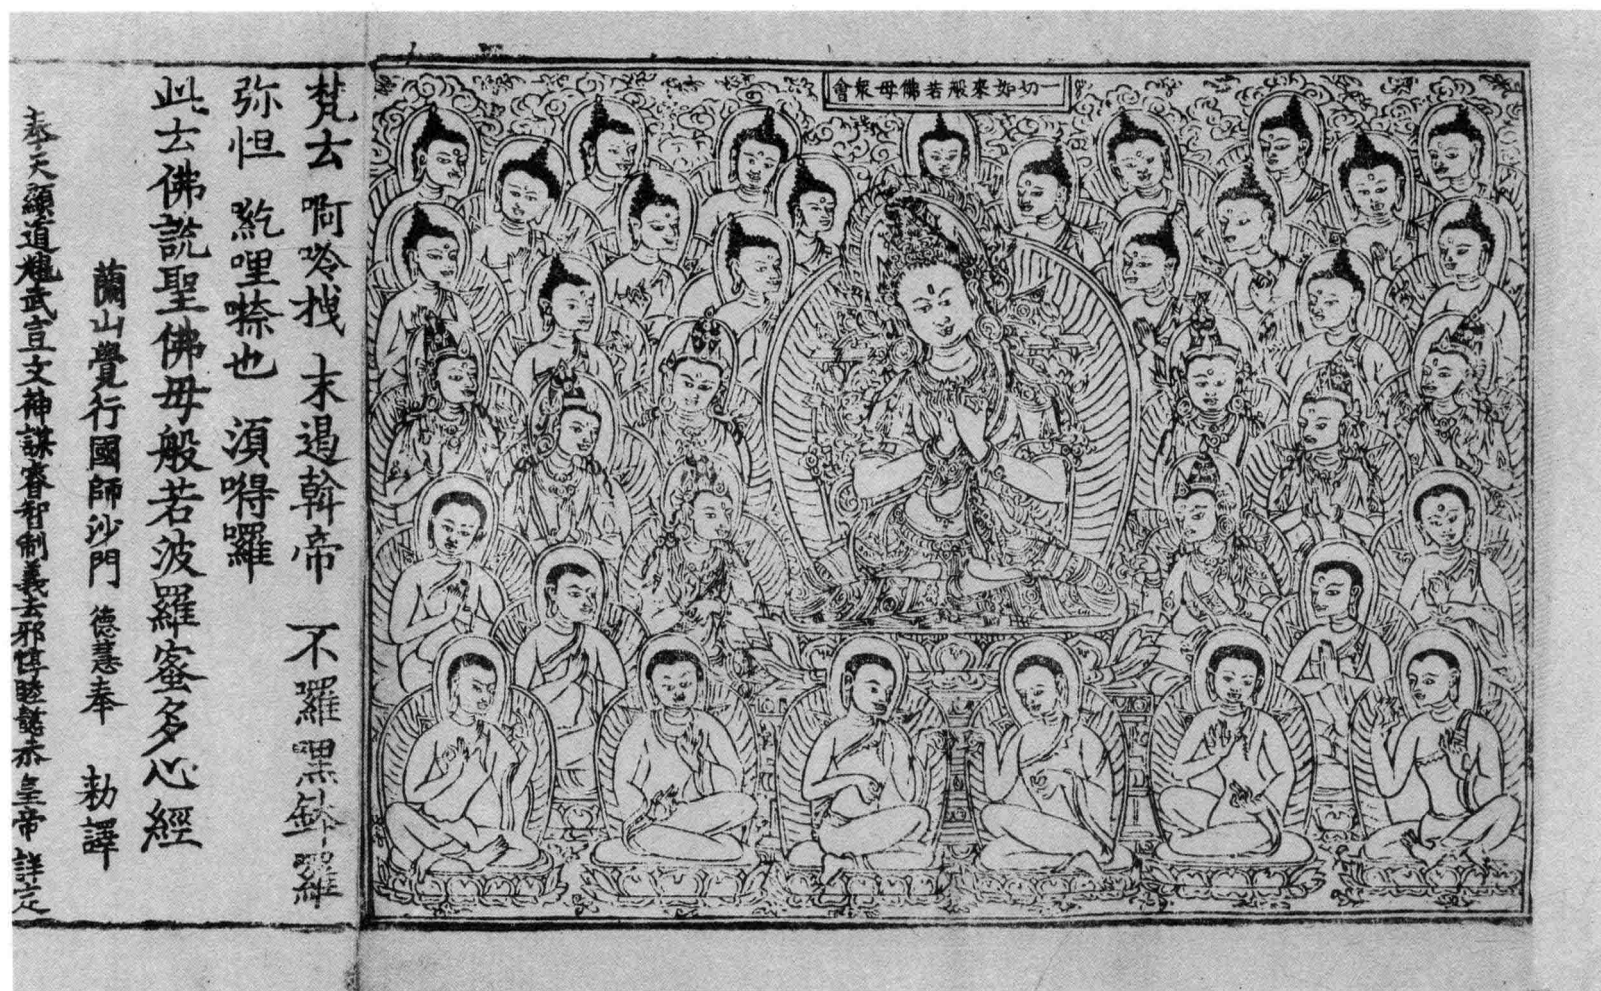 一切如來般若佛母衆會
梵云 啊呤拽 末遏斡帝 不囉嘿鉢囉
弥怛 紇哩𠹌也 須嘚囉
此云佛說聖佛母般若波羅蜜多心經
蘭山覺行國師沙門 德慧奉 勅譯
奉天顯道耀武宣文神謀睿智制義去邪惇睦懿恭 皇帝 詳定